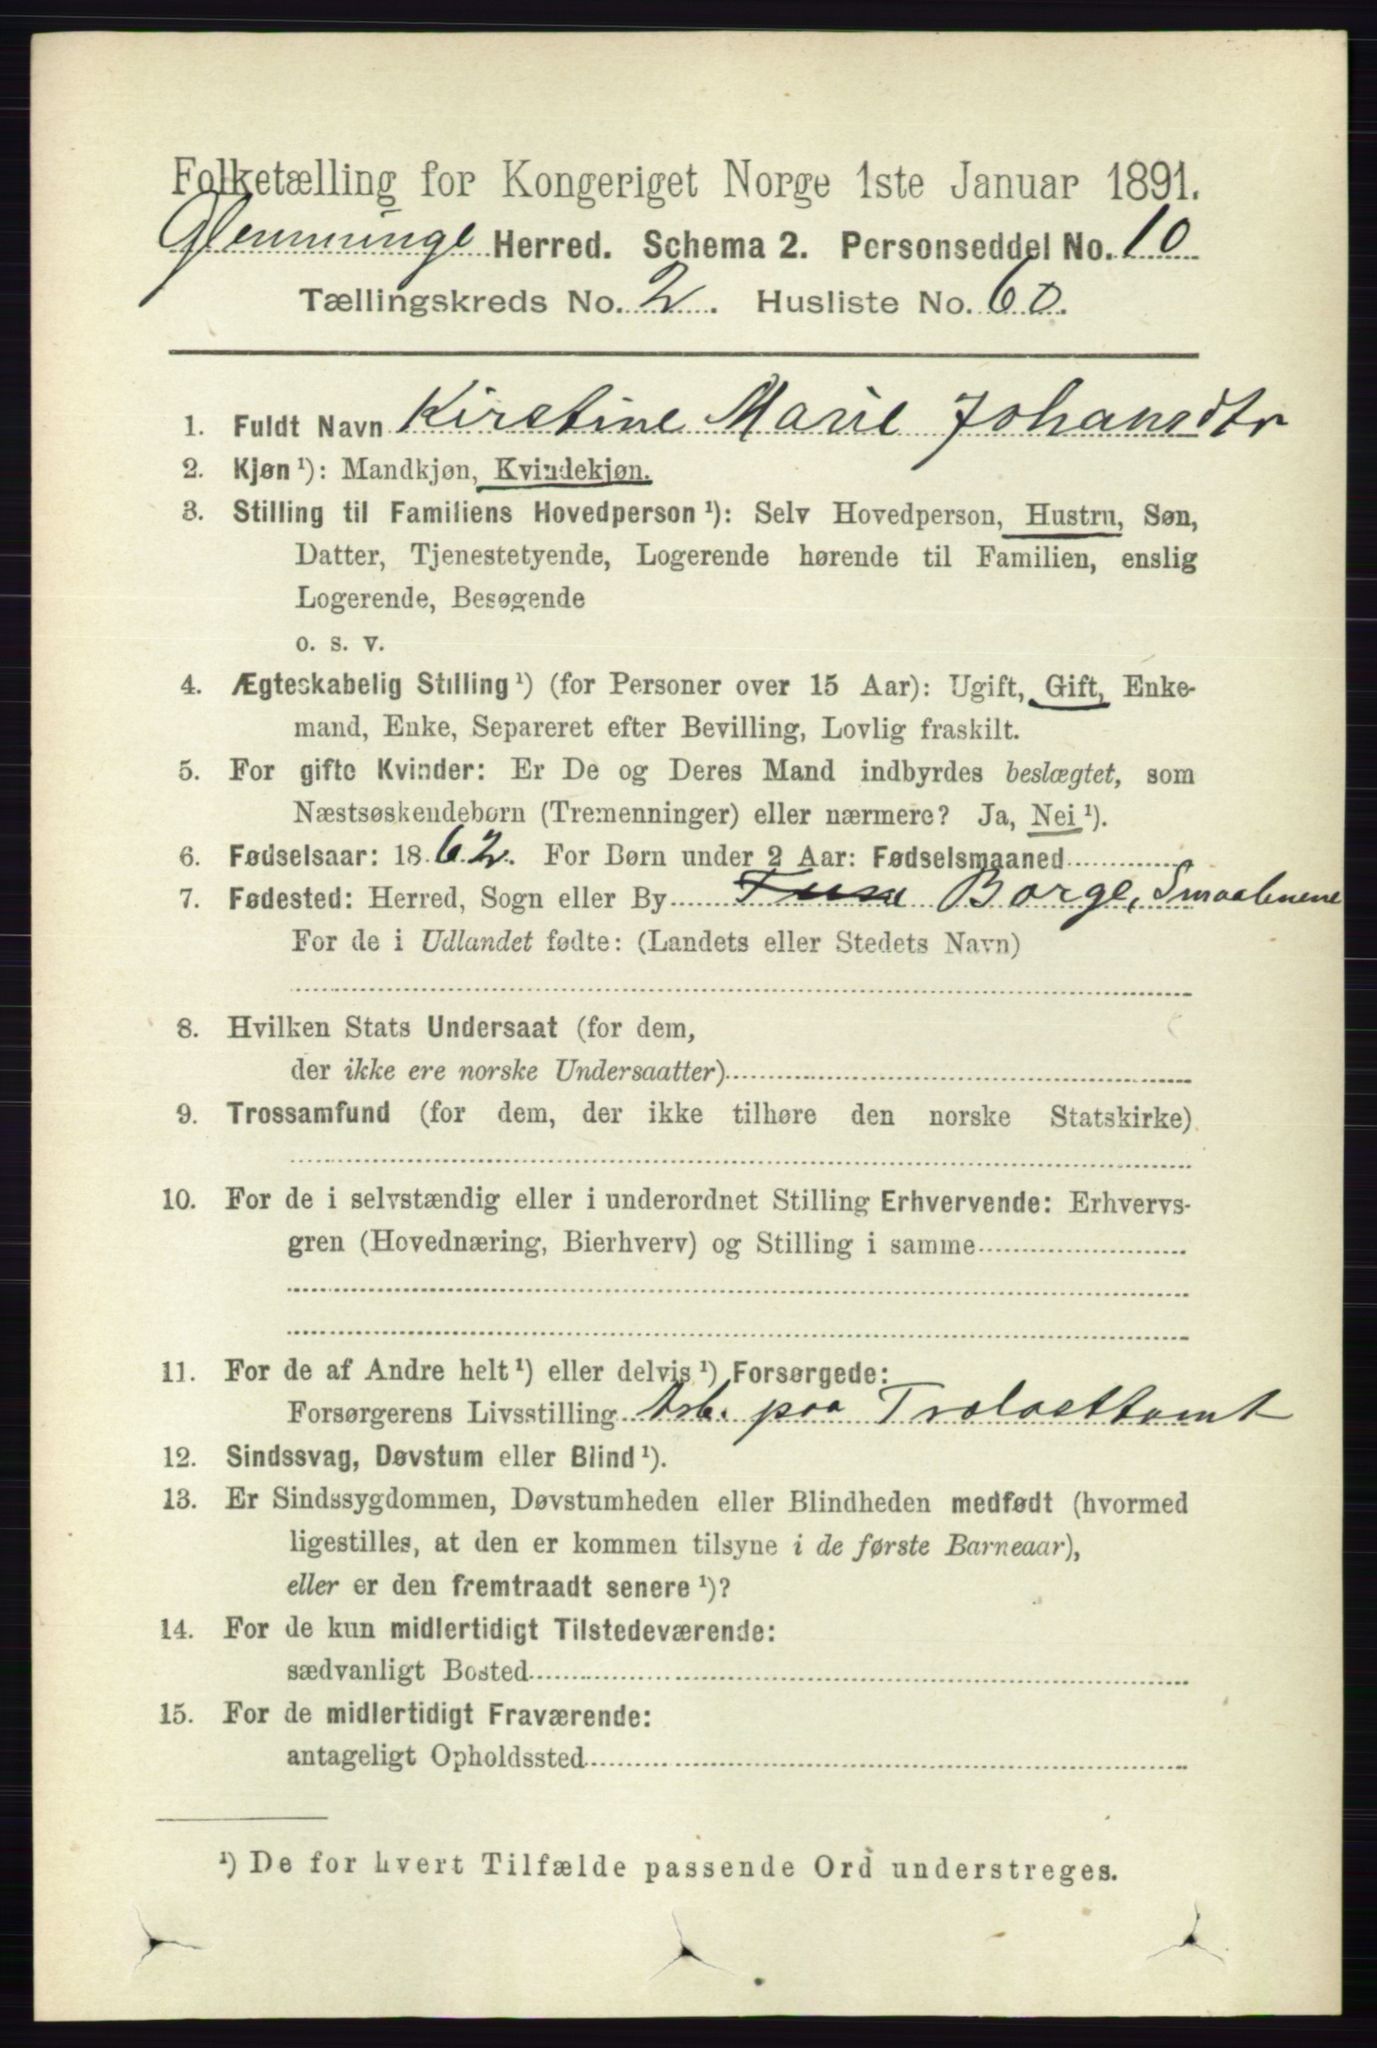 Folketælling for Kongeriget Norge 1ste Januar 1891.
Glemminge Herred. Schema 2. Personseddel No. 10
Tællingskreds No. 2. Husliste No. 60.
1. Fuldt Navn Kirstine Marie Johansdtr
2. Kjøn ¹): Mandkjøn, Kvindekjøn.
3. Stilling til Familiens Hovedperson ¹): Selv Hovedperson, Hustru, Søn,
Datter, Tjenestetyende, Logerende hørende til Familien, enslig
Logerende, Besøgende
o. s. v.
4. Ægteskabelig Stilling ¹) (for Personer over 15 Aar): Ugift, Gift, Enke-
mand, Enke, Separeret efter Bevilling, Lovlig fraskilt.
5. For gifte Kvinder: Er De og Deres Mand indbyrdes beslægtet, som
Næstsøskendebørn (Tremenninger) eller nærmere? Ja, Nei ¹).
6. Fødselsaar: 1862. For Børn under 2 Aar: Fødselsmaaned
7. Fødested: Herred, Sogn eller By Tune Borge, Smaalenene
For de i Udlandet fødte: (Landets eller Stedets Navn)
8. Hvilken Stats Undersaat (for dem,
der ikke ere norske Undersaatter)
9. Trossamfund (for dem, der ikke tilhøre den norske Statskirke)
10. For de i selvstændig eller i underordnet Stilling Erhvervende: Erhvervs-
gren (Hovednæring, Bierhverv) og Stilling i samme
11. For de af Andre helt ¹) eller delvis ¹) Forsørgede:
Forsørgerens Livsstilling Arb. paa Trælasttomt
12. Sindssvag, Døvstum eller Blind ¹).
13. Er Sindssygdommen, Døvstumheden eller Blindheden medfødt (hvormed
ligestilles, at den er kommen tilsyne i de første Barneaar),
eller er den fremtraadt senere ¹)?
14. For de kun midlertidigt Tilstedeværende:
sædvanligt Bosted
15. For de midlertidigt Fraværende:
antageligt Opholdssted
¹) De for hvert Tilfælde passende Ord understreges.